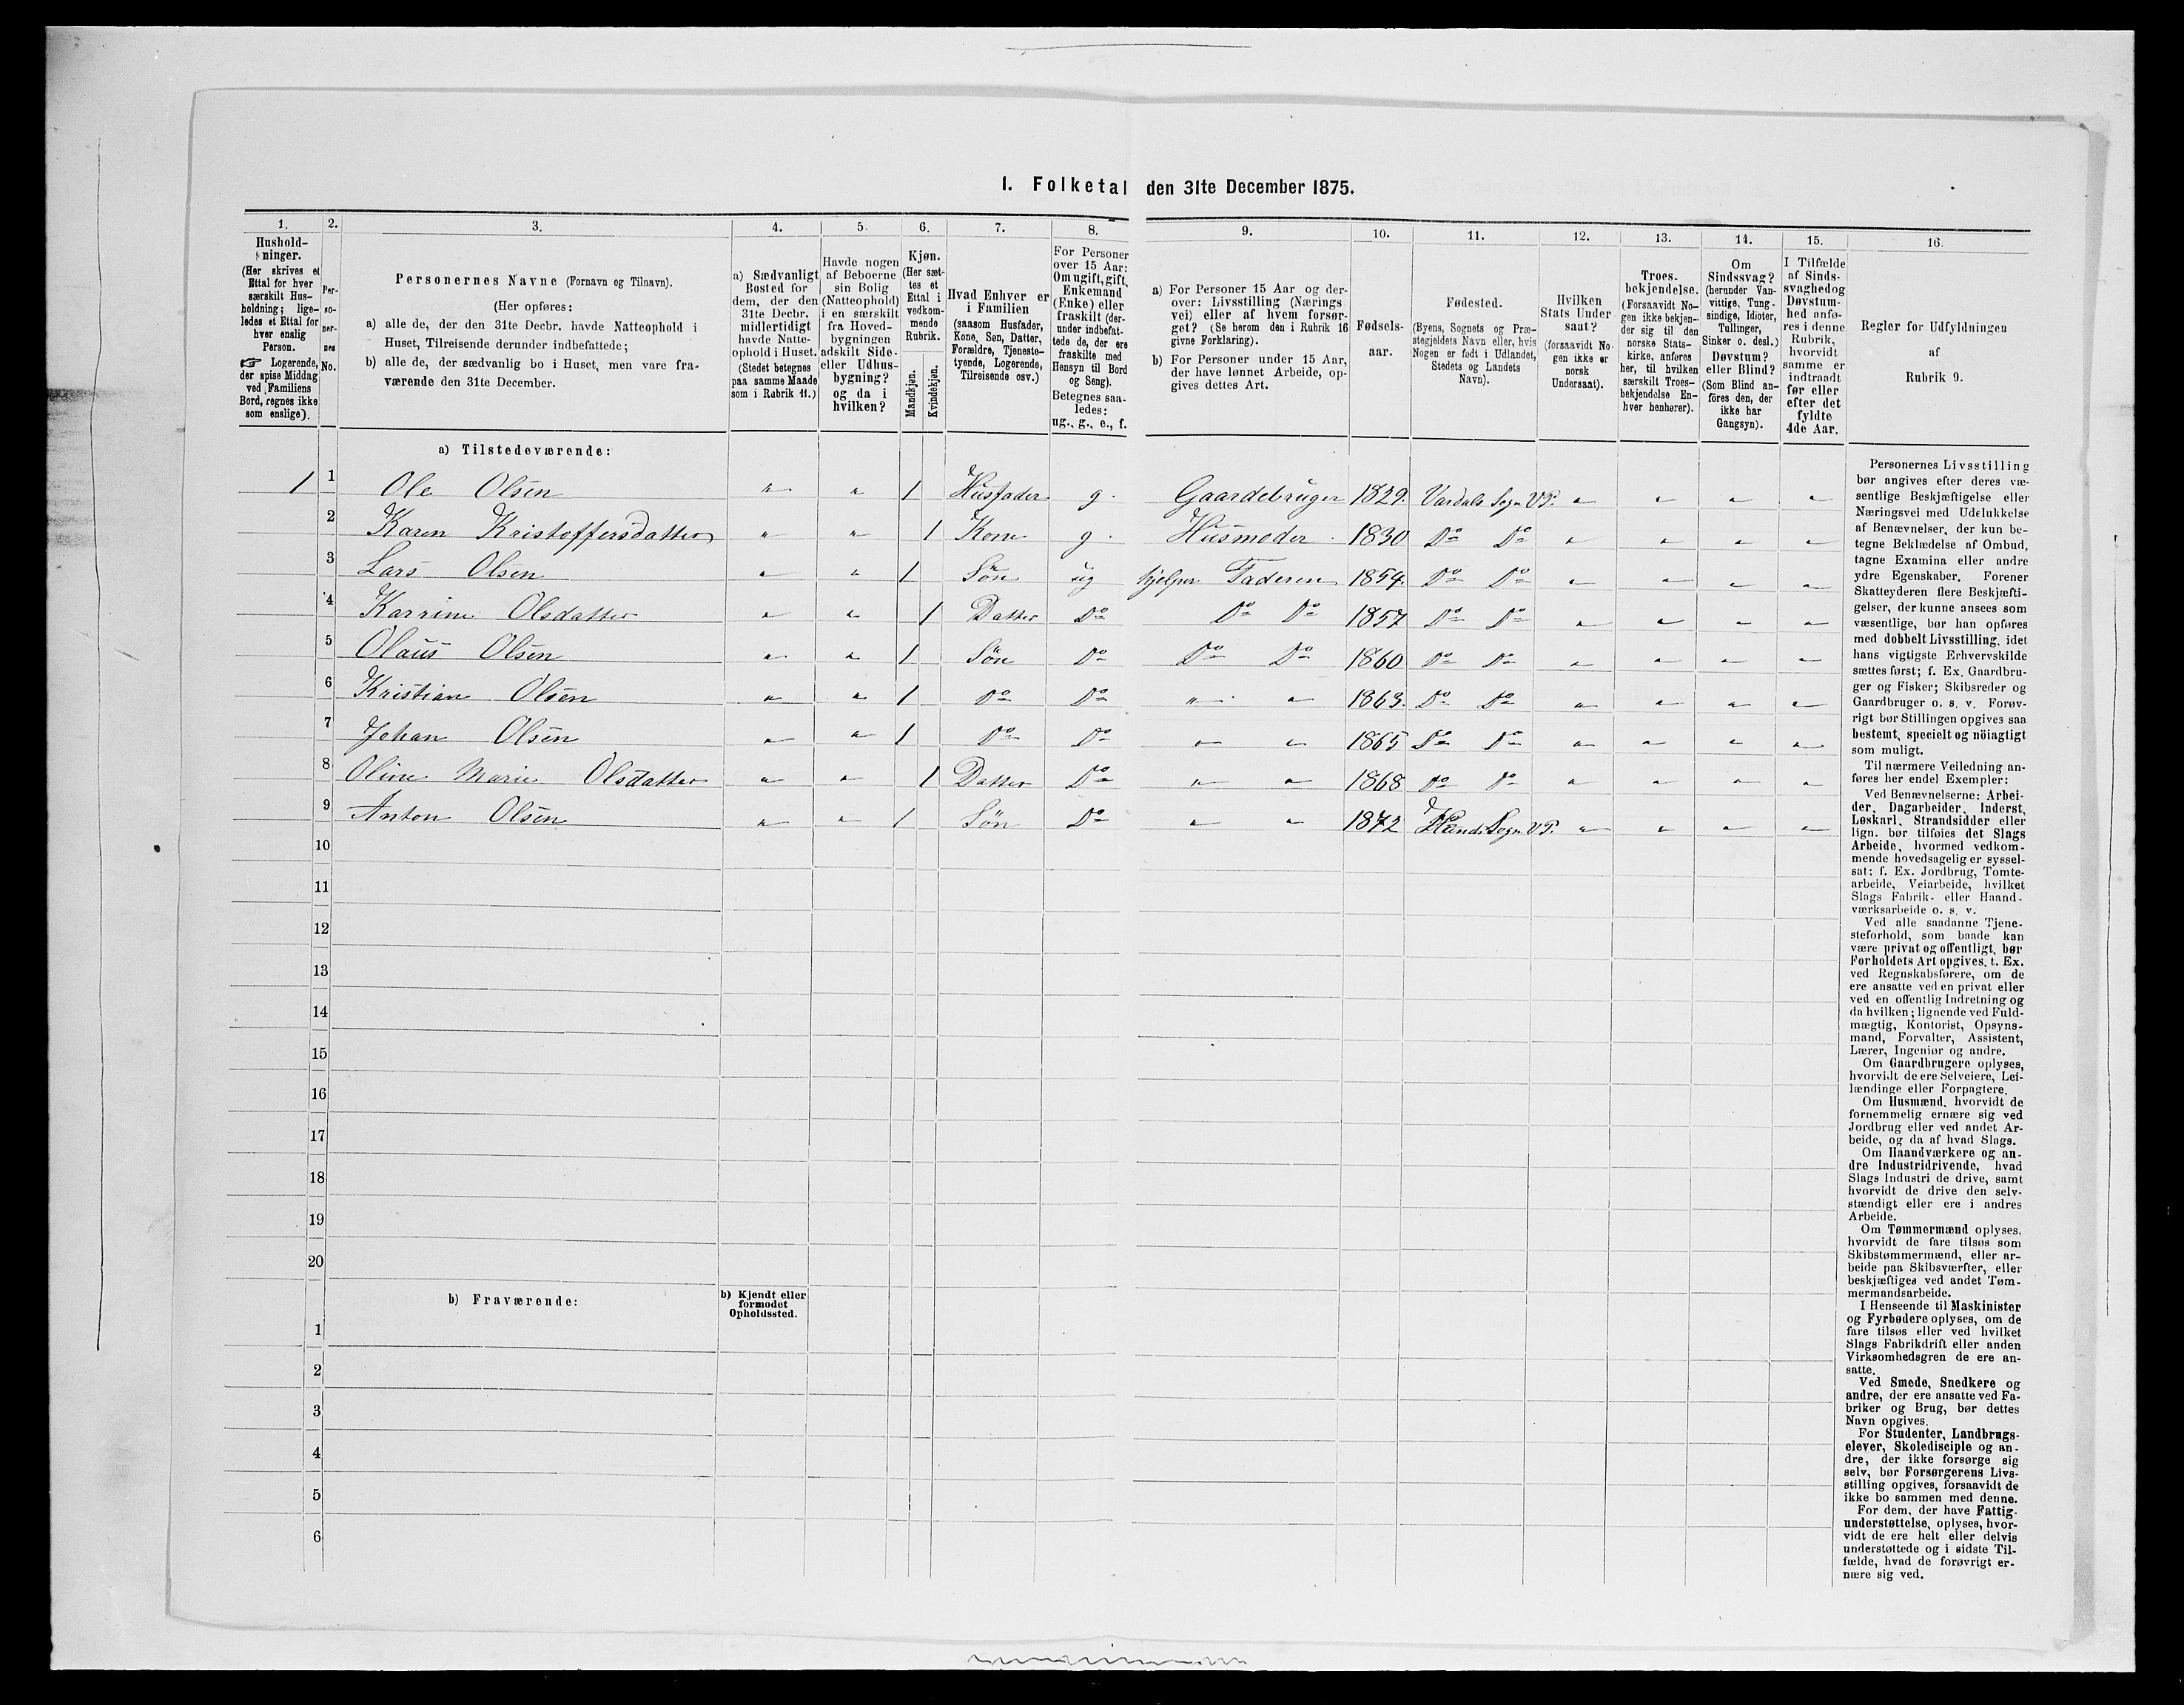 1. Folketal den 31te December 1875.
1. 2. 3. 4. 5. 6. 7. 8. 9. 10. 11. 12. 13. 14. 15. 16.
Hushold-
ninger.
(Her skrives et
Ettal for hver
særskilt Hus-
holdning; lige-
ledes et Ettal for
hver enslig
Person.
☞ Logerende,
der spise Middag
ved Familiens
Bord, regnes ikke
som enslige).
Per-
so-
ner-
nes
No.
Personernes Navne (Fornavn og Tilnavn).
(Her opføres:
a) alle de, der den 31te Decbr. havde Natteophold i
Huset, Tilreisende derunder indbefattede;
b) alle de, der sædvanlig bo i Huset, men vare fra-
værende den 31te December.
a) Sædvanligt
Bosted for
dem, der den
31te Decbr.
midlertidigt
havde Natte-
ophold i Huset.
(Stedet betegnes
paa samme Maade
som i Rubrik 11.)
Havde nogen
af Beboerne
sin Bolig
(Natteophold)
i en særskilt
fra Hoved-
bygningen
adskilt Side-
eller Udhus-
bygning?
og da i
hvilken?
Kjøn.
(Her sæt-
tes et
Ettal i
vedkom-
mende
Rubrik.
Mandkjøn.
Kvindekjøn.
Hvad Enhver er
i Familien
(saasom Husfader,
Kone, Søn, Datter,
Forældre, Tjeneste-
tyende, Logerende,
Tilreisende osv.)
For Personer
over 15 Aar:
Om ugift, gift,
Enkemand
(Enke) eller
fraskilt (der-
under indbefat-
tede de, der ere
fraskilte med
Hensyn til Bord
og Seng).
Betegnes saa-
ledes:
ug., g., e., f.
a) For Personer 15 Aar og der-
over: Livsstilling (Nærings
vei) eller af hvem forsør-
get? (Se herom den i Rubrik 16
givne Forklaring).
b) For Personer under 15 Aar,
der have lønnet Arbeide, op-
gives dettes Art.
Fødsels-
aar.
Fødested.
(Byens, Sognets og Præ-
stegjeldets Navn eller, hvis
Nogen er født i Udlandet,
Stedets og Landets
Navn).
Hvilken
Stats Under
saat?
(forsaavidt No-
gen ikke er
norsk
Undersaat).
Troes-
bekjendelse.
(Forsaavidt No-
gen ikke bekjen-
der sig til den
norske Stats-
kirke, anføres
her, til hvilken
særskilt Troes-
bekjendelse En-
hver henhører).
Om
Sindssvag?
(herunder Van-
vittige, Tung-
sindige, Idioter,
Tullinger,
Sinker o. desl.)
Døvstum?
eller Blind?
(Som Blind an-
føres den, der
ikke har
Gangsyn).
I Tilfælde
af Sinds-
svaghed og
Døvstum-
hed anfø-
res i denne
Rubrik,
hvorvidt
samme er
indtraadt
før eller
efter det
fyldte
4de Aar.
Regler for Udfyldningen
af
Rubrik 9.
a) Tilstedeværende:
1 1 Ole Olsen " " 1 Husfader g. Gaardebruger 1829. Vardals Sogn V P. " " " "
2 Karen Kristoffersdatter " " 1 Kone g. Husmoder 1830 Do Do " " " "
3 Lars Olsen " " 1 Søn ug hjelper Faderen 1854. Do Do " " " "
4 Karrine Olsdatter " " 1 Datter Do Do Do 1857 Do Do " " " "
5 Olaus Olsen " " 1 Søn Do Do Do 1860 Do Do " " " "
6 Kristian Olsen " " 1 Do Do " " 1863. Do Do " " " "
7 Johan Olsen " " 1 Do Do " " 1865 Do Do " " " "
8 Oline Marie Olsdatter " " 1 Datter Do " " 1868 Do Do " " " "
9 Anton Olsen " " 1 Søn Do " " 1872 Sogn V P. " " " "
10
11
12
13
14
15
16
17
18
19
20
b) Fraværende:
b) Kjendt eller
formodet
Opholdssted.
1
2
3
4
5
6
Personernes Livsstilling
bør angives efter deres væ-
sentlige Beskjæftigelse eller
Næringsvei med Udelukkelse
af Benævnelser, der kun be-
tegne Beklædelse af Ombud,
tagne Examina eller andre
ydre Egenskaber. Forener
Skatteyderen flere Beskjæfti-
gelser, der kunne ansees som
væsentlige, bør han opføres
med dobbelt Livsstilling, idet
hans vigtigste Erhvervskilde
sættes først; f. Ex. Gaardbru-
ger og Fisker; Skibsreder og
Gaardbruger o. s. v. Forøv-
rigt bør Stillingen opgives saa
bestemt, specielt og nöiagtigt
som muligt.
Til nærmere Veiledning an-
føres her endel Exempler:
Ved Benævnelserne: Arbei-
der, Dagarbeider, Inderst,
Løskarl, Strandsidder eller
lign. bør tilføies det Slags
Arbeide, hvormed vedkom-
mende hovedsagelig er syssel-
sat; f. Ex. Jordbrug, Tomte-
arbeide, Veiarbeide, hvilket
Slags Fabrik- eller Haand-
værksarbeide o. s. v.
Ved alle saadanne Tjene-
steforhold, som baade kan
være privat og offentligt, bør
Forholdets Art opgives, t. Ex.
ved Regnskabsførere, om de
ere ansatte ved en privat eller
ved en offentlig Indretning og
da hvilken; lignende ved Fuld-
mægtig, Kontorist, Opsyns-
mand, Forvalter, Assistent,
Lærer, Ingeniør og andre.
Om Gaardbrugere oplyses,
hvorvidt de ere Selveiere, Lei-
lændinge eller Forpagtere.
Om Husmænd, hvorvidt de
fornemmelig ernære sig ved
Jordbrug eller ved andet Ar-
beide, og da af hvad Slags.
Om Haandværkere og an-
dre Industridrivende, hvad
Slags Industri de drive, samt
hvorvidt de drive den selv-
stændigt eller ere i andres
Arbeide.
Om Tømmermænd oplyses,
hvorvidt de fare tilsøs som
Skibstømmermænd, eller ar-
beide paa Skibsværfter, eller
beskjæftiges ved andet Tøm-
mermandsarbeide.
I Henseende til Maskinister
og Fyrbødere oplyses, om de
fare tilsøs eller ved hvilket
Slags Fabrikdrift eller anden
Virksomhedsgren de ere an-
satte.
Ved Smede, Snedkere og
andre, der ere ansatte ved Fa-
briker og Brug, bør dettes
Navn opgives.
For Studenter, Landbrugs-
elever, Skoledisciple og an-
dre, der ikke forsørge sig
selv, bør Forsørgerens Livs-
stilling opgives, forsaavidt de
ikke bo sammen med denne.
For dem, der have Fattig-
understøttelse, oplyses, hvor-
vidt de ere helt eller delvis
understøttede og i sidste Til-
fælde, hvad de forøvrigt er-
nære sig ved.